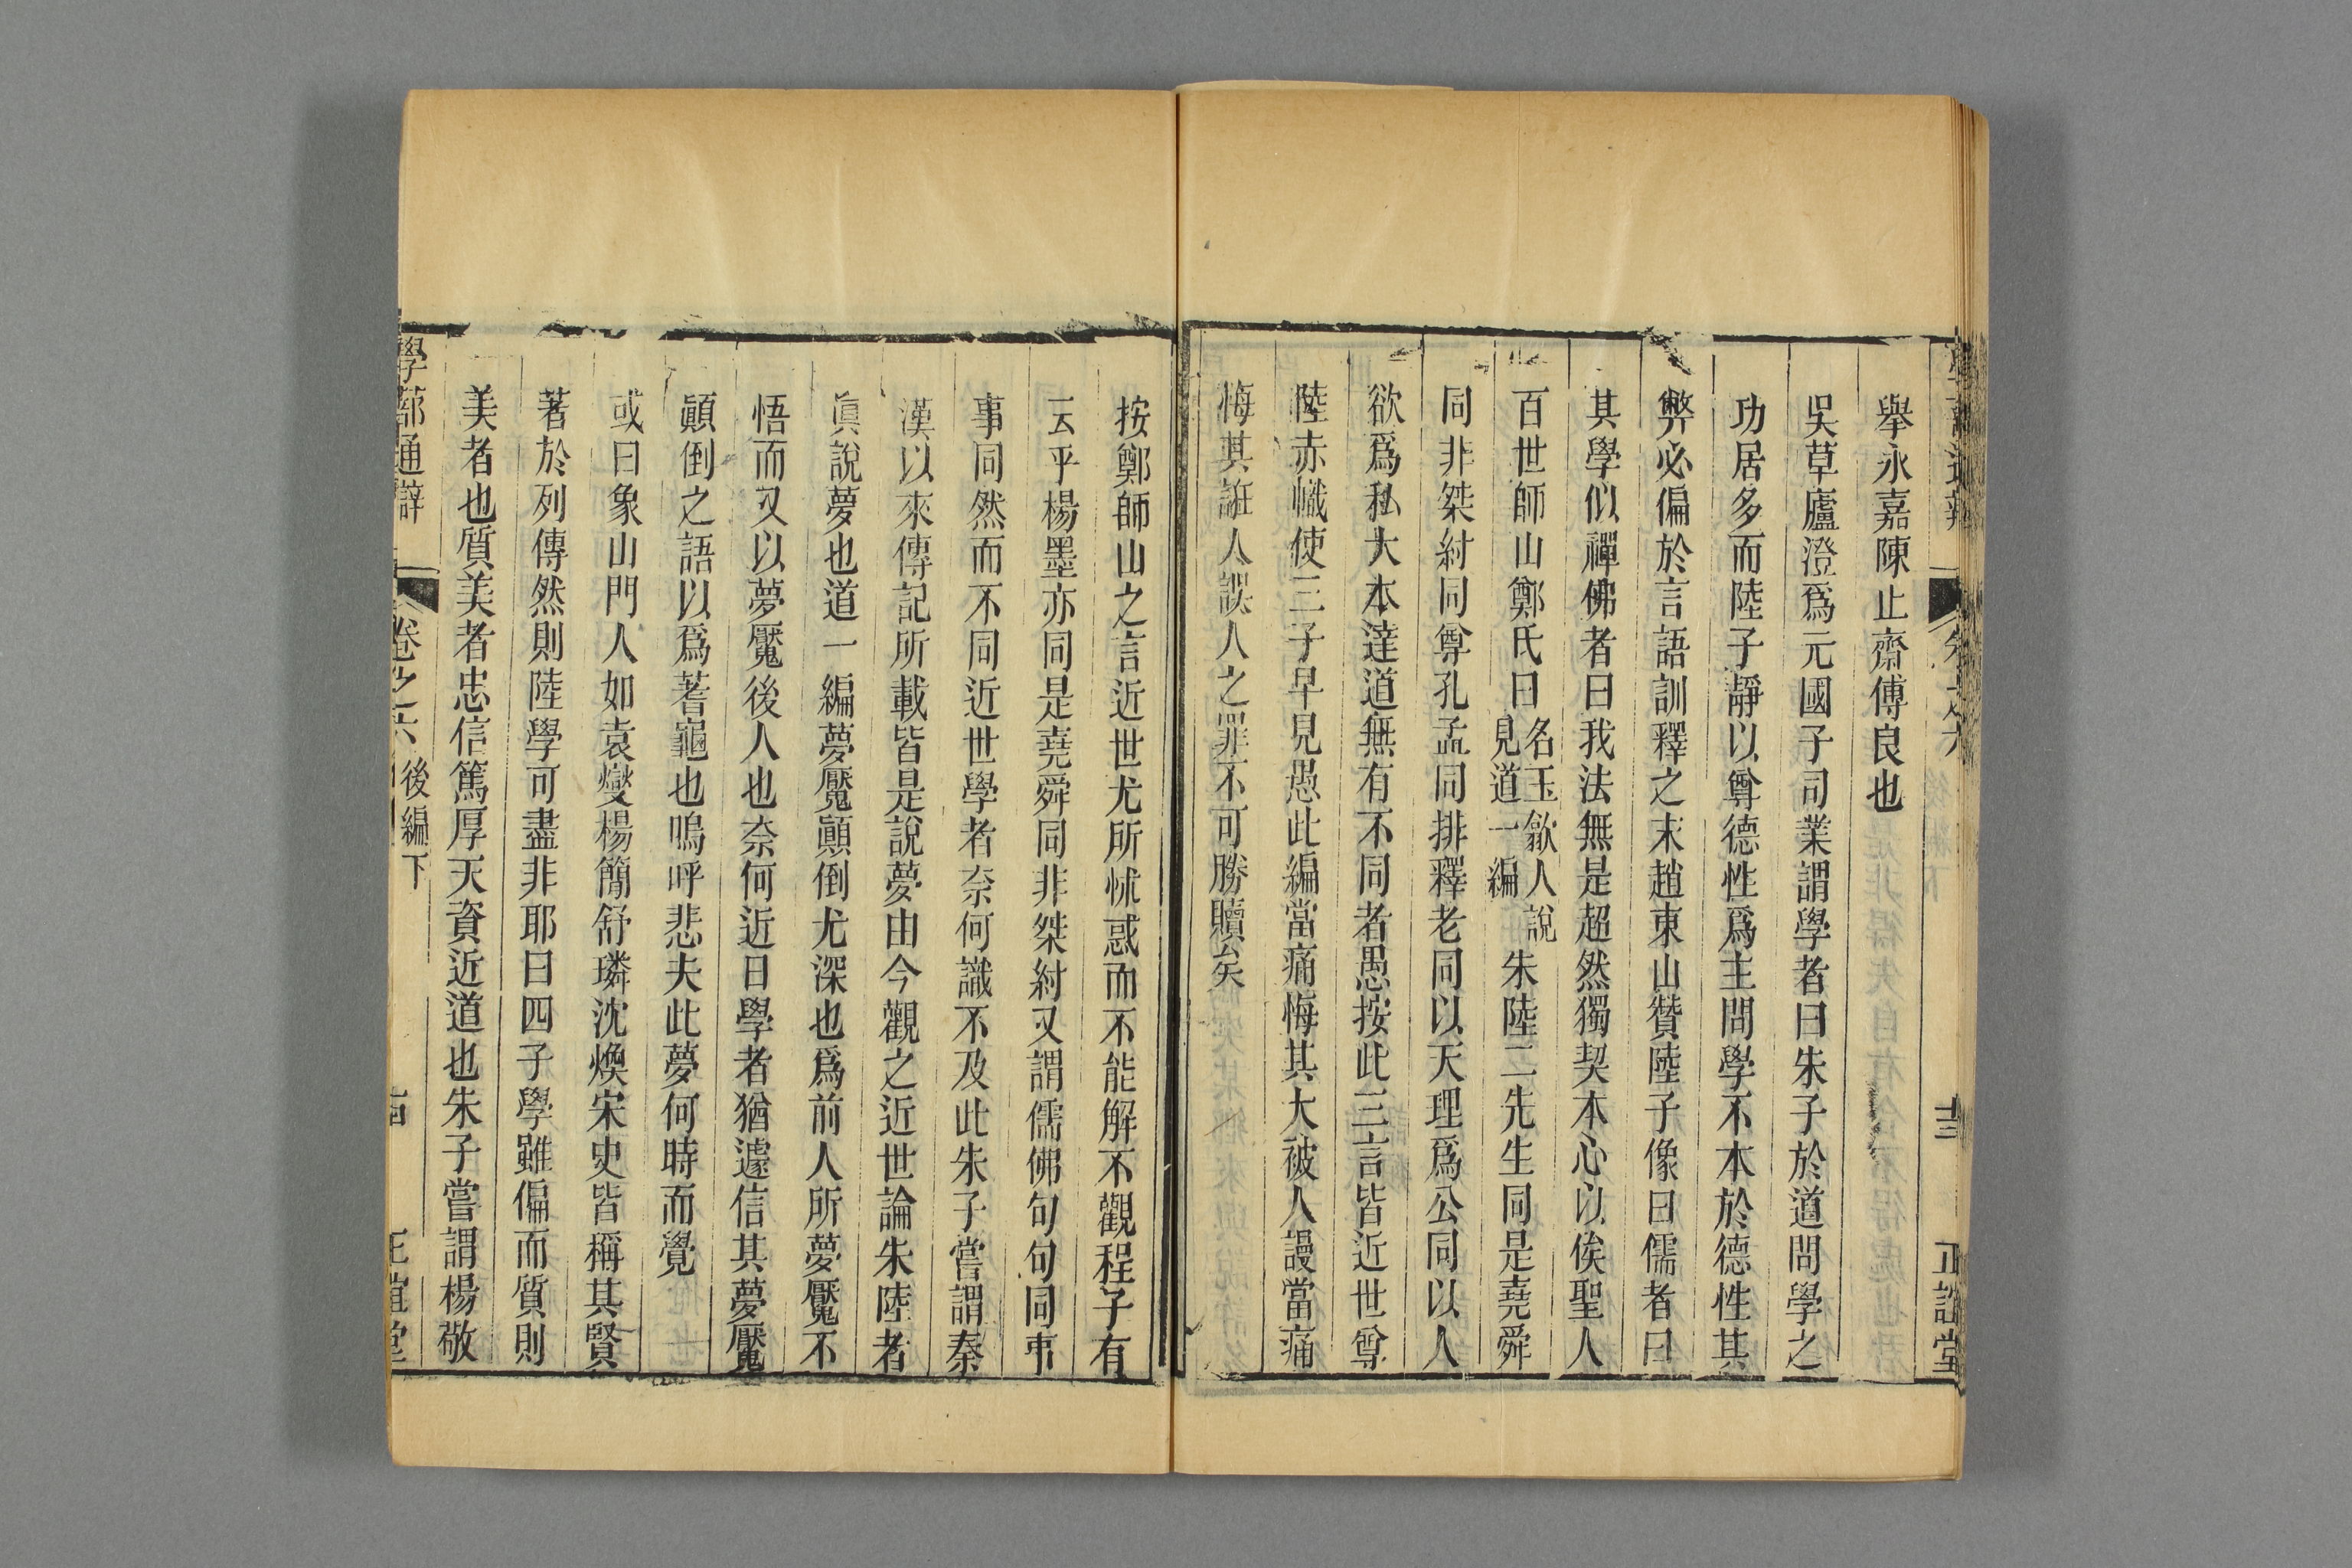 舉永嘉陳止齋傅良也
吳草廬澄爲元國子司業謂學者曰朱子於道問學之
功居多而陸子靜以尊德性爲主問學不本於德性其
弊必偏於言語訓釋之末趙東山贊陸子像曰儒者曰
其學似禪佛者曰我法無是超然獨契本心以俟聖人
百世師山鄭氏曰名玉歙人說見道一編朱陸二先生同是堯舜
同非桀紂同尊孔孟同排釋老同以天理爲公同以人
欲爲私大本達道無有不同者愚按此三言皆近世尊
陸赤幟使三子早見愚此編當痛悔其大被人謾當痛
悔其誑人誤人之罪不可勝贖矣
正誼堂
按鄭師山之言近世尤所怵惑而不能解不觀程子有
云乎楊墨亦同是堯舜同非桀紂又謂儒佛句句同事
事同然而不同近世學者奈何識不及此朱子嘗謂秦
漢以來傳記所載皆是說夢由今觀之近世論朱陸者
眞說夢也道一編夢魘顚倒尤深也爲前人所夢魘不
悟而又以夢魘後人也奈何近日學者猶遽信其夢魘
顚倒之語以爲蓍龜也嗚呼悲夫此夢何時而覺
或曰象山門人如袁燮楊簡舒璘沈煥宋史皆稱其賢
著於列傳然則陸學可盡非耶曰四子學雖偏而質則
美者也質美者忠信篤厚天資近道也朱子嘗謂楊敬
學蔀通辯 卷之六 後編下 正誼堂